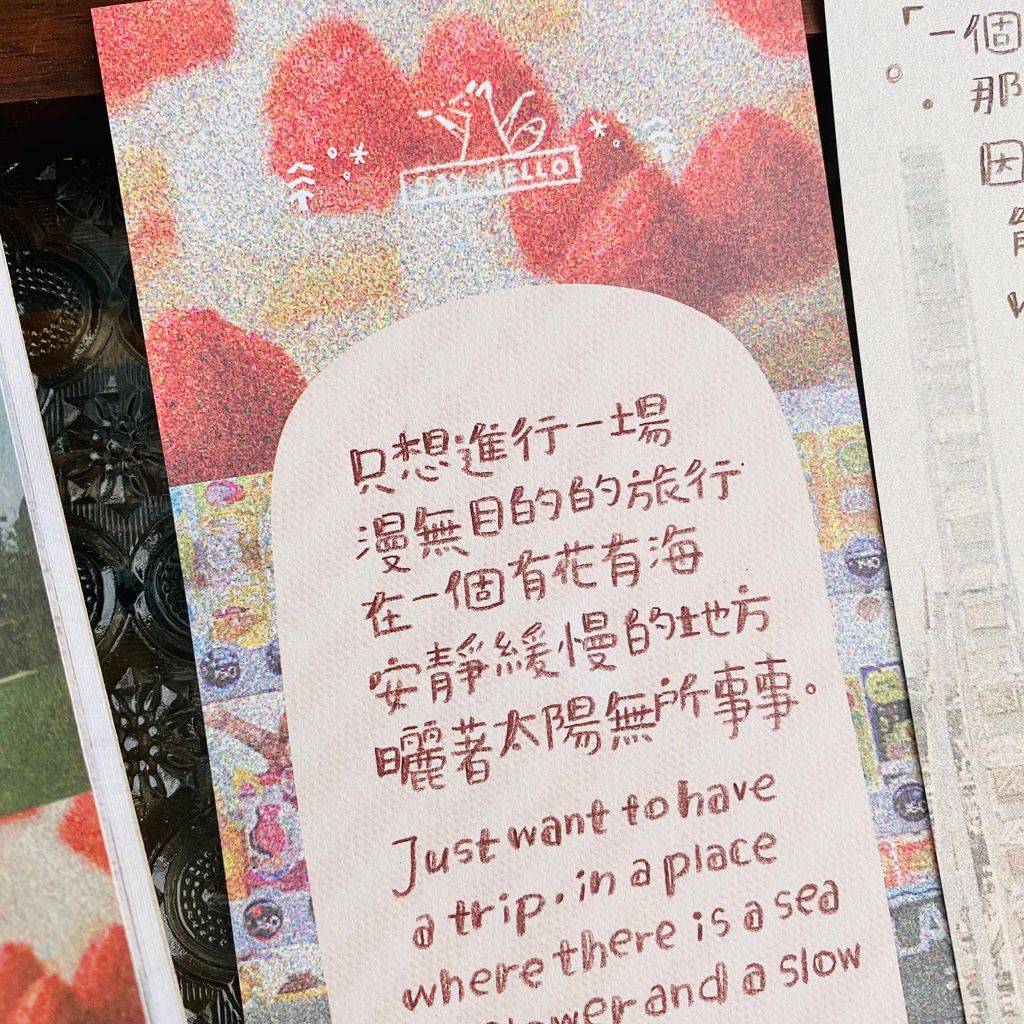 SAY HELLO
只想進行一場
漫無目的的旅行
在一個有花有海
安靜緩慢的地方
曬著太陽無所事事。
Just want to have
a trip. in a place
where there is a sea
and a slow
「一個
那
因